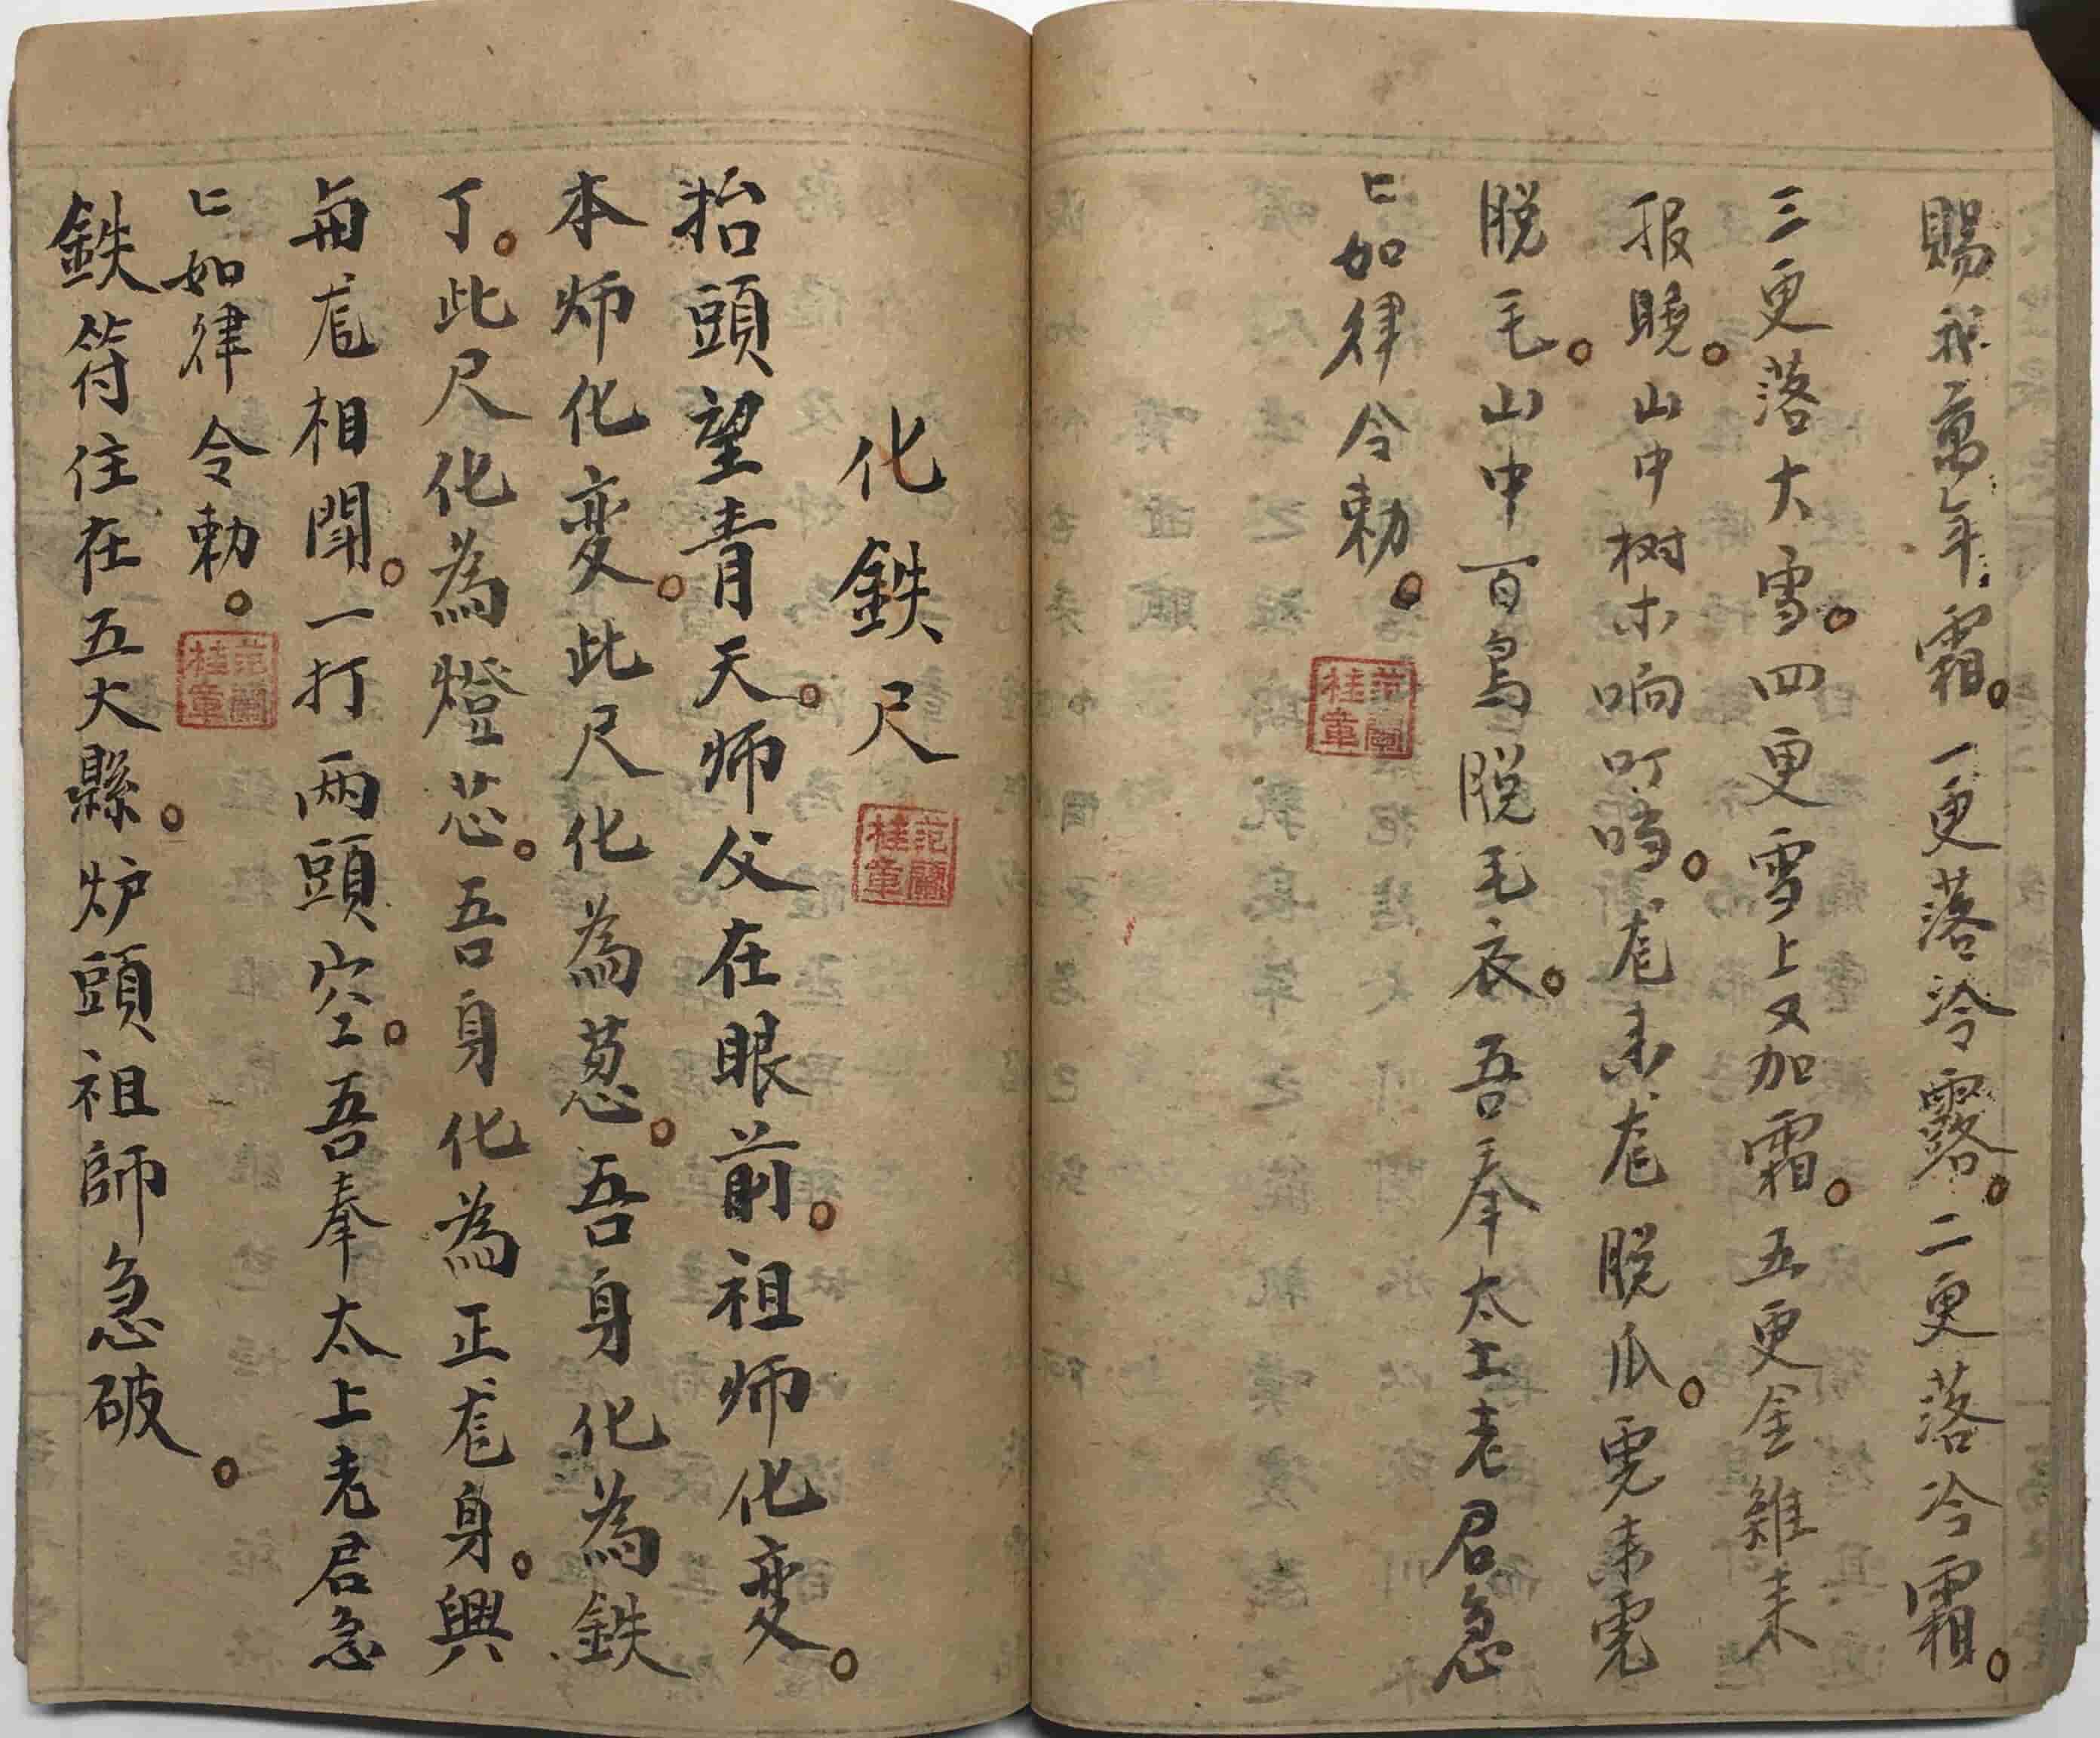 賜我萬年霜。一更落冷露。二更落冷霜。
三更落大雪。四更雪上又加霜。五更金雞未
报曉。山中树木响叮噹。尨未尨脱瓜。雪未雪
脱毛。山中百鳥脱毛衣。吾奉太上老君急
匕如律令勅。
范蘭桂章
化鉄尺
范蘭桂章
抬頭望青天。师父在眼前。祖师化変。
本师化変。此尺化為葱。吾身化為鉄
丁。此尺化為燈芯。吾身化為正尨身。與
毎尨相閗。一打両頭空。吾奉太上老君急
匕如律令勅。
范蘭桂章
鉄符住在五大縣。炉頭祖師急破。